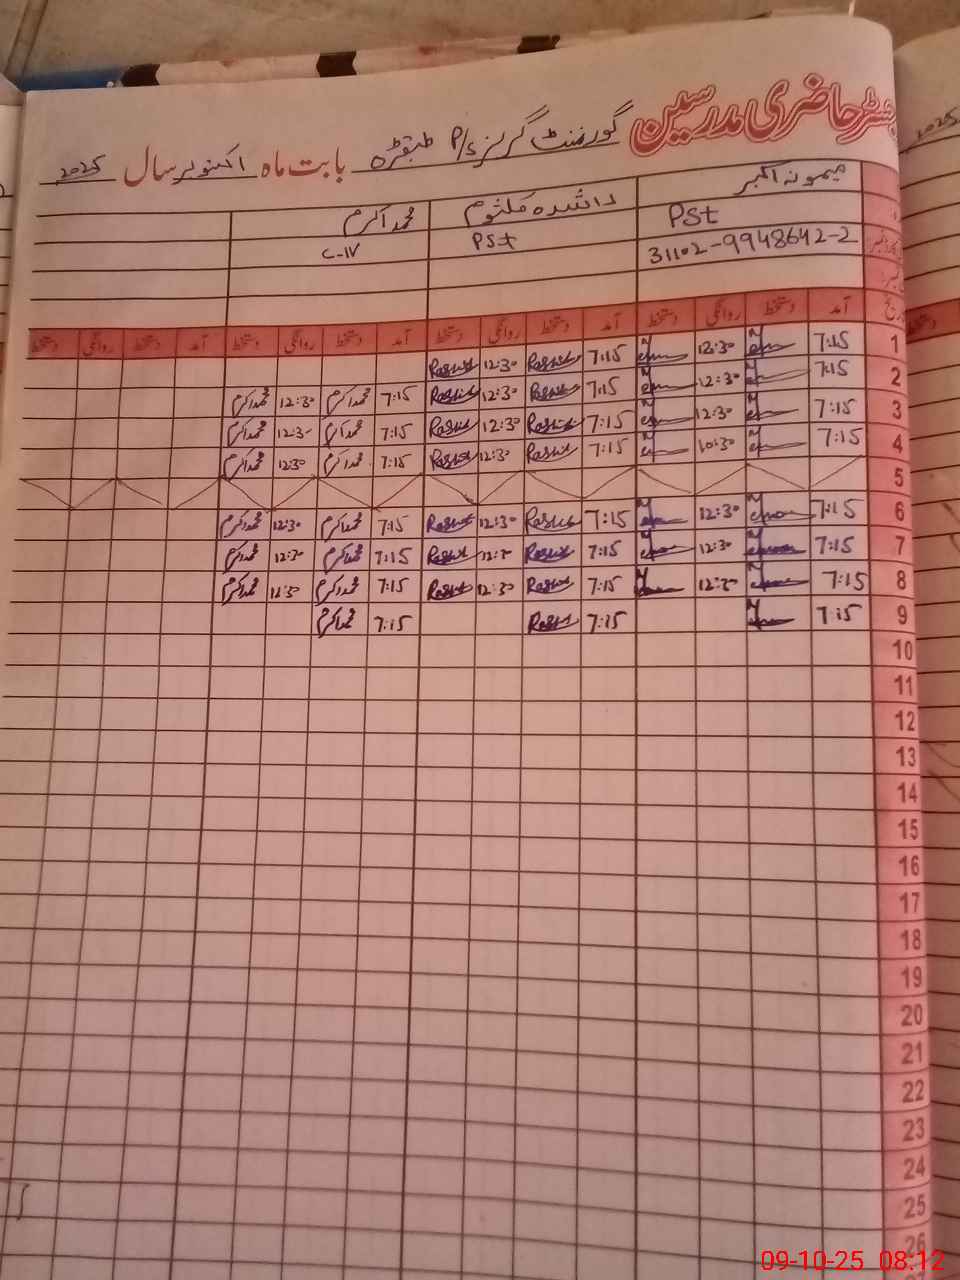 رجسٹر حاضری مدرسین گورنمنٹ گرلز P/S بابت ماہ اکتوبر سال 2025
میمونہ اکبر راشدہ کلثوم محمد اکرم
PSt PSt C-IV
31102-9948642-2
تاریخ آمد دستخط روانگی دستخط آمد دستخط روانگی دستخط آمد دستخط روانگی دستخط آمد دستخط روانگی دستخط
1 7:15 12:30 7:15 Rashid 12:30 Rashid
2 7:15 12:30 7:15 Rashid 12:30 Rashid 7:15 محمد اکرم 12:30 محمد اکرم
3 7:15 12:30 7:15 Rashid 12:30 Rashid 7:15 محمد اکرم 12:30 محمد اکرم
4 7:15 10:30 7:15 Rashid 12:30 Rashid 7:15 محمد اکرم 12:30 محمد اکرم
5
6 7:15 12:30 7:15 Rashid 12:30 Rashid 7:15 محمد اکرم 12:30 محمد اکرم
7 7:15 12:30 7:15 Rashid 12:30 Rashid 7:15 محمد اکرم 12:30 محمد اکرم
8 7:15 12:30 7:15 Rashid 12:30 Rashid 7:15 محمد اکرم 12:30 محمد اکرم
9 7:15 7:15 Rashid 7:15 محمد اکرم
10
11
12
13
14
15
16
17
18
19
20
21
22
23
24
25
26
2025
09-10-25 08:12